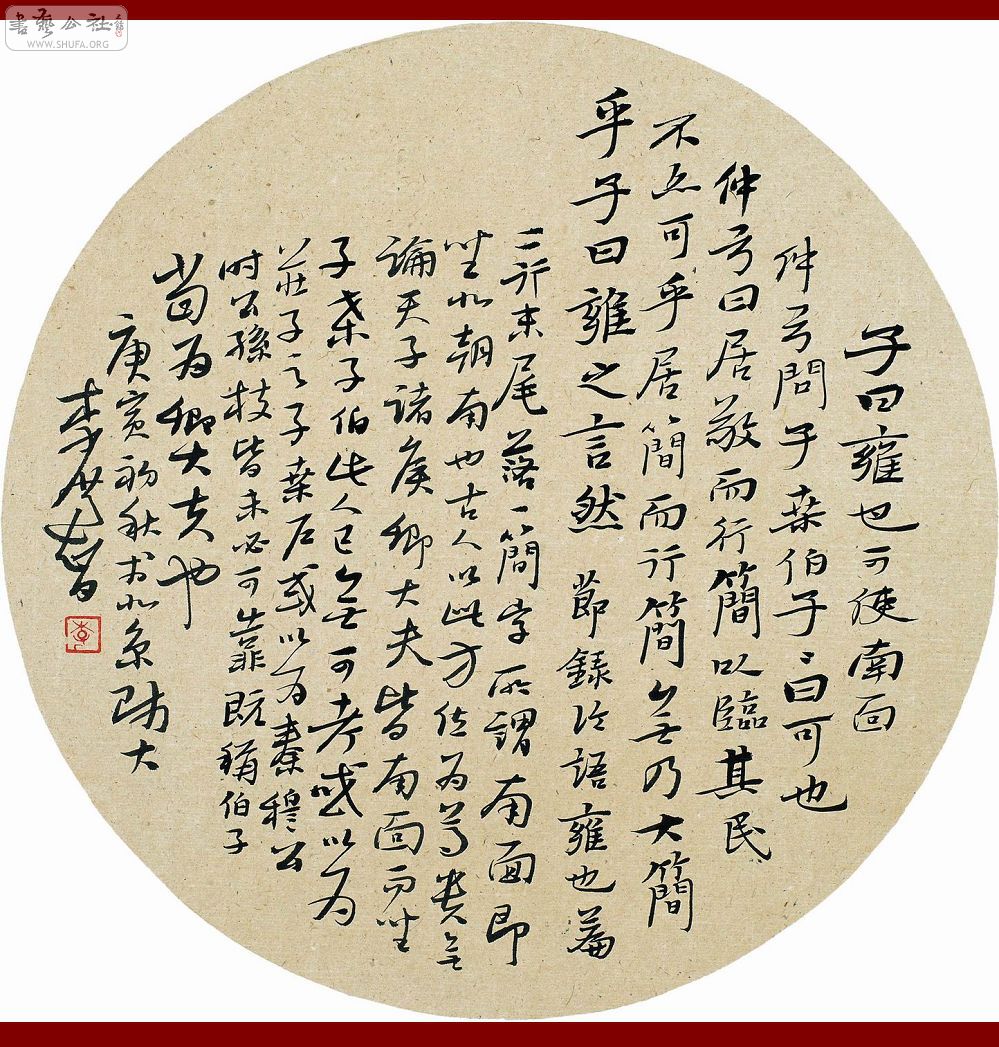 書藝公社
WWW.SHUFA.ORG
子曰雍也可使南面
仲弓問子桑伯子〻曰可也
仲弓曰居敬而行簡以臨其民
不亦可乎居簡而行簡無乃大簡
乎子曰雍之言然 節錄論語雍也篇
三行末尾落一簡字所謂南面即
坐北朝南也古人以此方位為尊貴無
論天子諸侯卿大夫皆南面而坐
子桑子伯此人已無可考或以為
莊子之子桑户或以為秦穆公
时公孫枝皆未必可靠既稱伯子
當為卿大夫也
庚寅初秋书北京师大
李
李